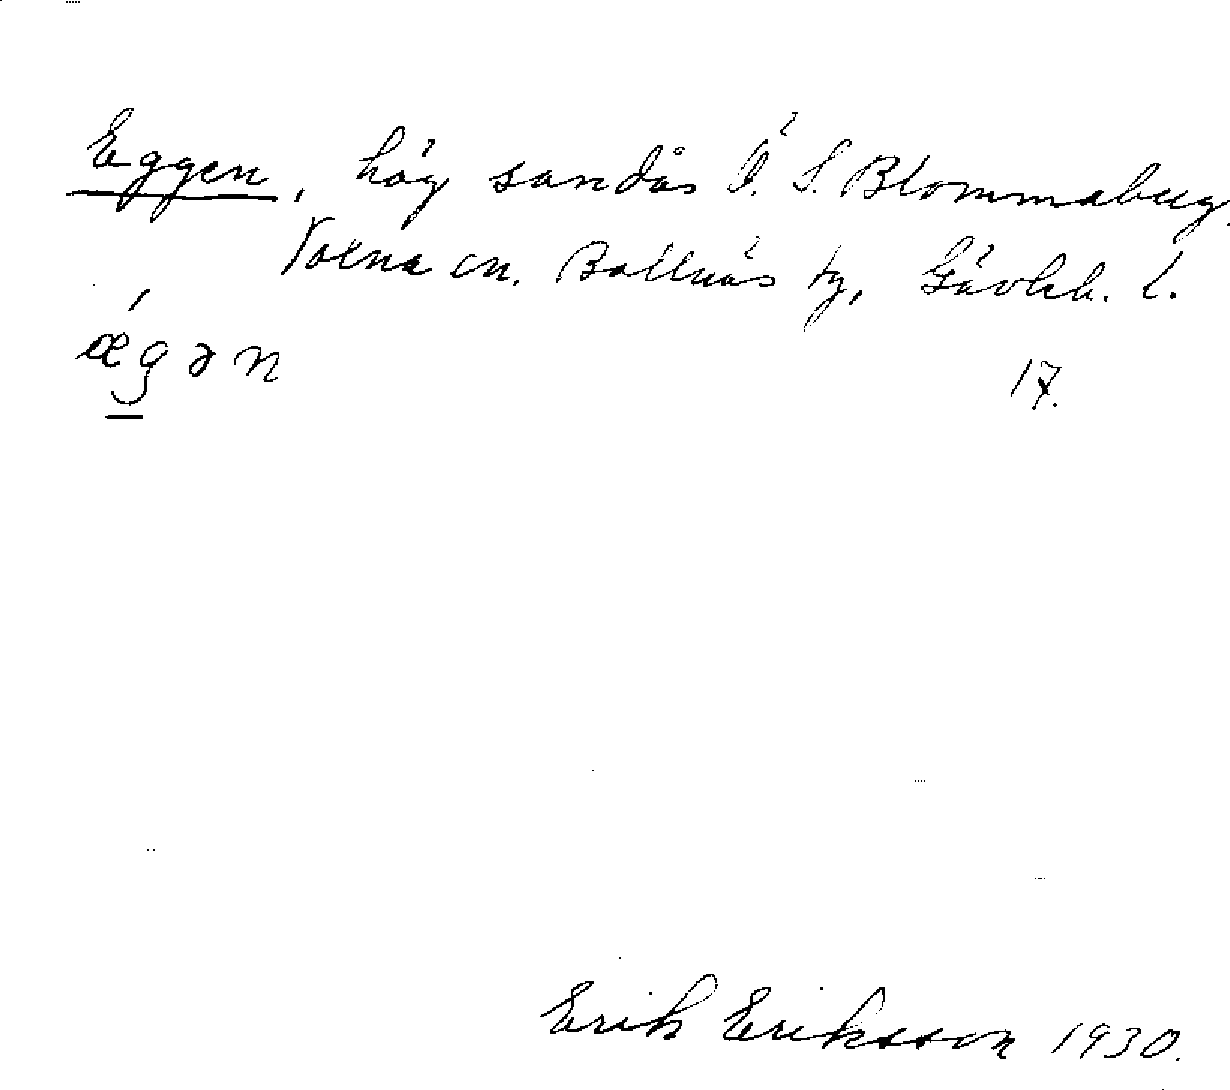 Eggen, hög sandås Ö. S. Blommaberg.
Voxna sn. Bollnäs tg, Gävleb. l.
ǽgən
17.
Erik Eriksson 1930.